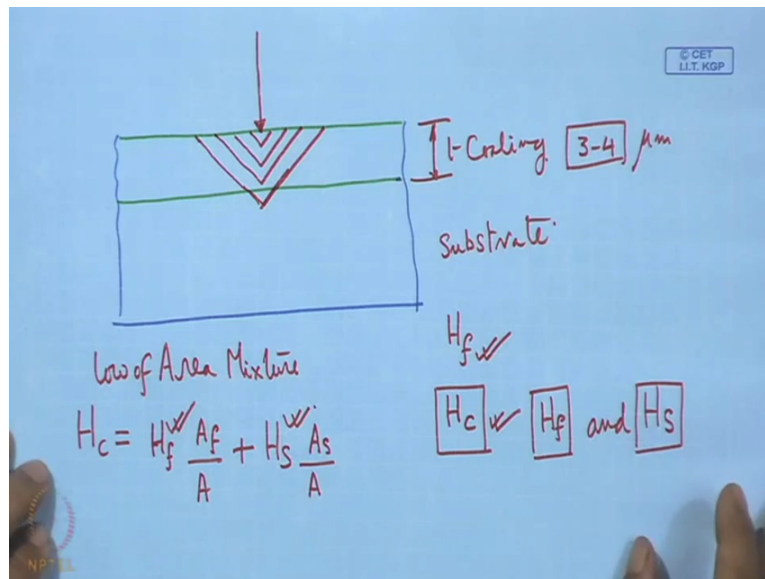 © CET
I.I.T. KGP
t-Coating 3-4 μm
Substrate
Hf
Law of Area Mixture
Hc = Hf Af/A + Hs As/A
Hc Hf and Hs
NPTEL